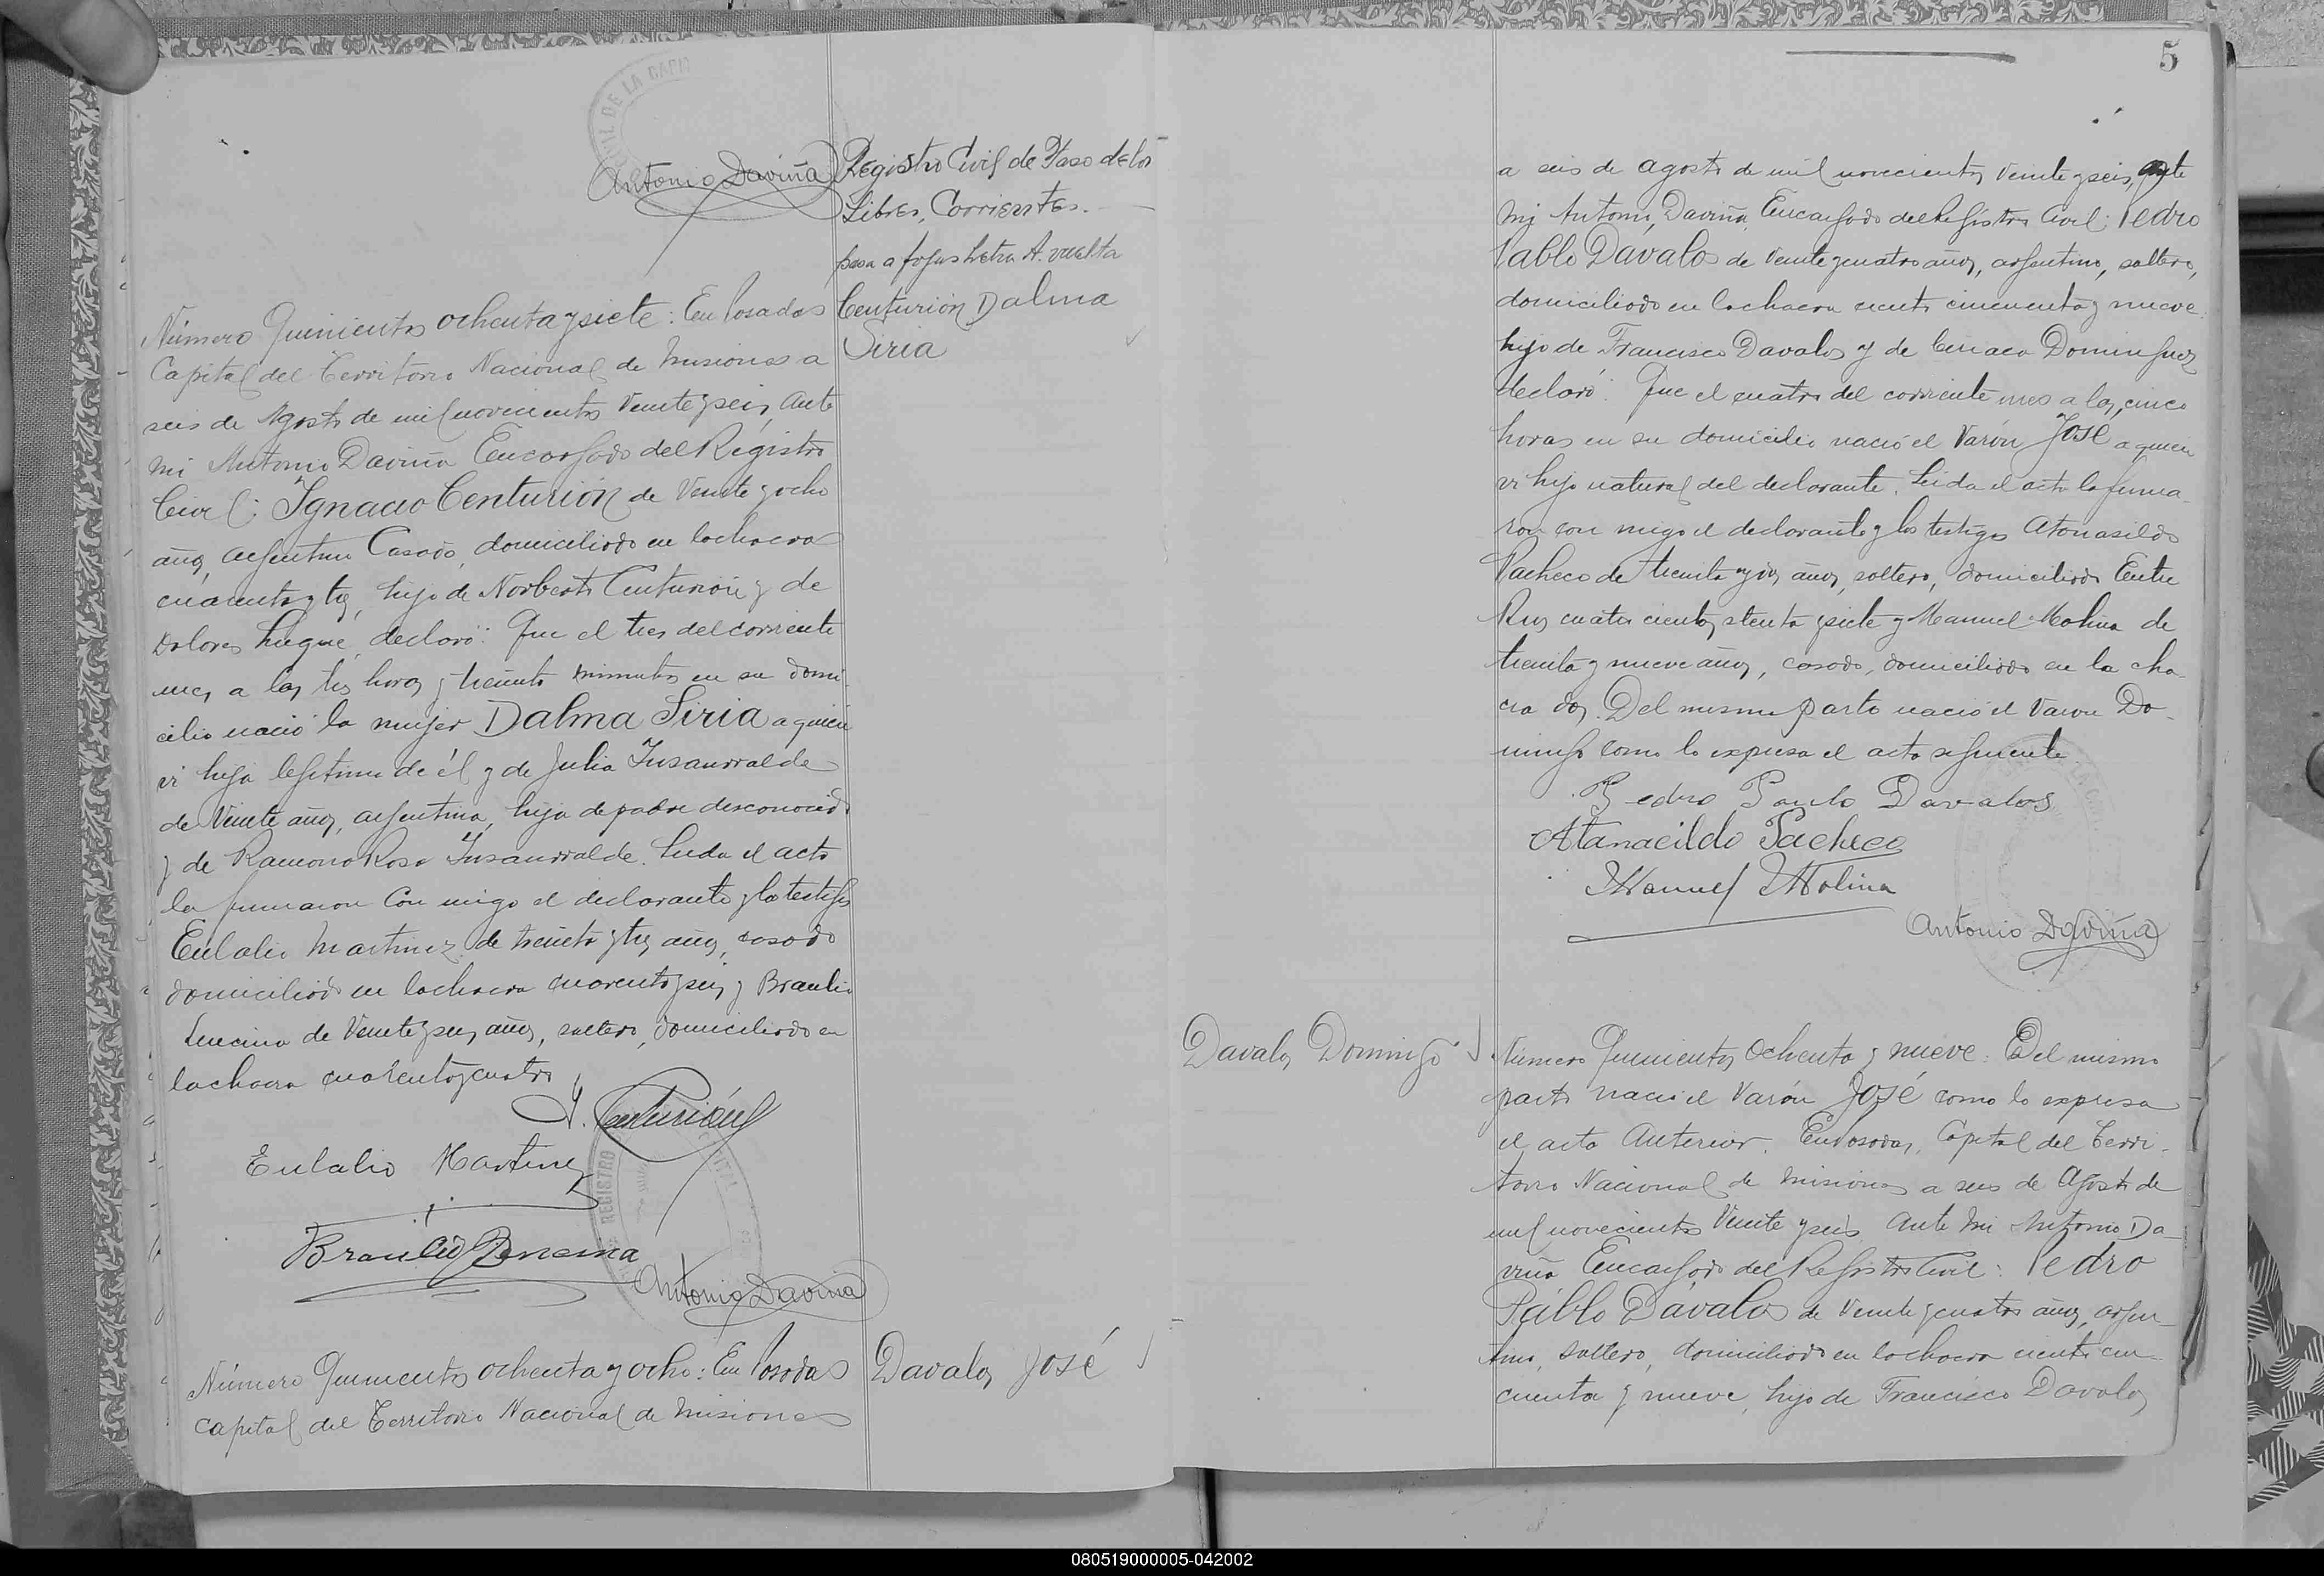 Antonio Daviña
Registro Civil de Paso de los
Libres, Corrientes.
pasa a fojas letra A. vuelta
Centurión Dalma
Siria
Número Quinientos ochenta y siete: En Posadas
Capital del Territorio Nacional de Misiones a
seis de Agosto de mil novecientos veinte y seis, ante
mi Antonio Daviña Encargado del Registro
Civil: Ignacio Centurión de Veinte y ocho
años, argentino Casado, domiciliado en la chacra
cuarenta y tres, hijo de Norberto Centurión y de
Dolores Luque, declaró: Que el tres del corriente
mes, a las tres horas y treinta minutos en su domi-
cilio nació la mujer Dalma Siria a quien
vi hija legitima de él y de Julia Insaurralde
de Veinte años, argentina, hija de padre desconocido
y de Ramona Rosa Insaurralde. Leida el acta
la firmaron con migo el declarante y los testigos
Eulalio Martinez de treinta y tres años, casado
domiciliado en la chacra cuarenta y seis y Braulio
de Veinte y seis años, soltero, domiciliado en
la chacra cuarenta y cuatro
I. Centurión
Eulalio Martinez
Braulio
Antonio Daviña
Número Quinientos ochenta y ocho: En Posadas
Capital del Territorio Nacional de Misiones
Davalos José
5
a seis de agosto de mil novecientos veinte y seis, ante
mi Antonio Daviña, Encargado del Registro Civil: Pedro
Pablo Davalos de veinte y cuatro años, argentino, soltero,
domiciliado en la chacra ciento cincuenta y nueve
hijo de Francisco Davalos y de Ciriaca Dominguez
declaró: Que el cuatro del corriente mes a las cinco
horas en su domicilio nació el Varón José a quien
vi hijo natural del declarante. Leida el acta la firma-
ron con migo el declarante y los testigos Atanasildo
Pacheco de treinta y dos años, soltero, domiciliado Entre
Rios cuatro cientos setenta y siete y Manuel Molina de
treinta y nueve años, casado, domiciliado en la cha-
cra dos. Del mismo parto nació el Varon Do-
mingo como lo expresa el acta siguiente.
Pedro Paulo Davalos
Atanacildo Pacheco
Manuel Molina
Antonio Daviña
Davalos Domingo
Número Quinientos Ochenta y nueve: Del mismo
parto nació el Varón José como lo expresa
el acta Anterior. En Posadas, Capital del Terri-
torio Nacional de Misiones a seis de Agosto de
mil novecientos Veinte y seis Ante mi Antonio Da-
viña Encargado del Registro Civil: Pedro
Pablo Dávalos de Veinte y cuatro años, argen-
tino, soltero, domiciliado en la chacra ciento cin-
cuenta y nueve, hijo de Francisco Davalos
080519000005-042002